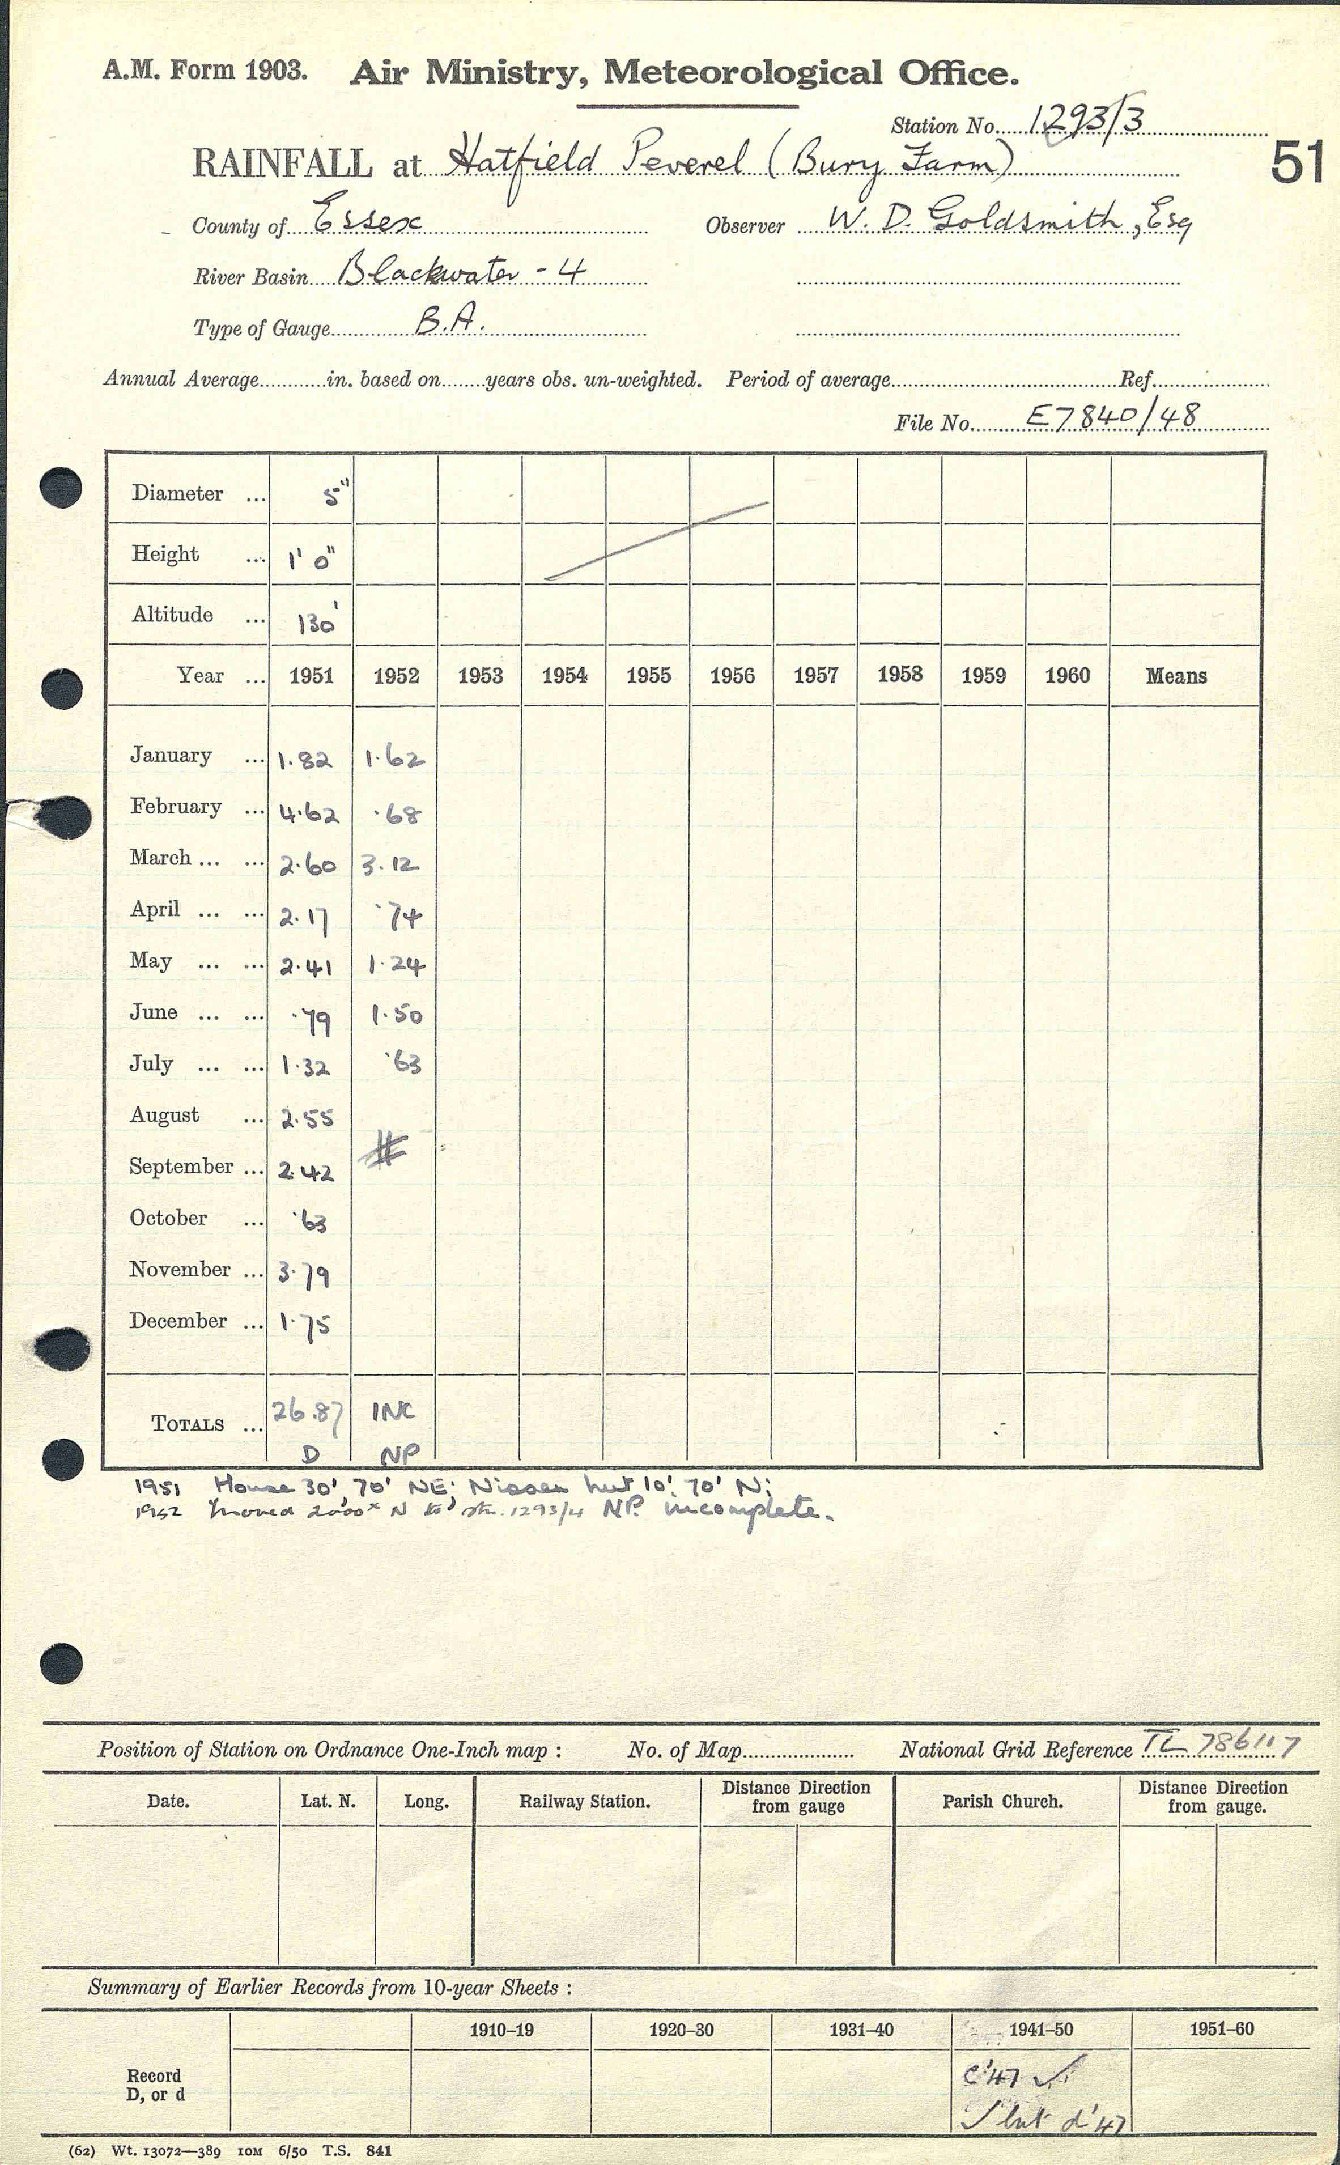 A.M. Form 1903. Air Ministry, Meteorological Office.
Station No. 1293/3
RAINFALL at Hatfield Peverel (Bury Farm)
51
County of Essex Observer W. D. Goldsmith, Esq
River Basin Blackwater - 4
Type of Gauge B.A.
Annual Average in. based on years obs. un-weighted. Period of average Ref
File No. E7840/48
Diameter ... 5"
Height ... 1' 0"
Altitude ... 130'
Year ... 1951 1952 1953 1954 1955 1956 1957 1958 1959 1960 Means
January ... 1.82 1.62
February ... 4.62 .68
March ... ... 2.60 3.12
April ... ... 2.17 .74
May ... ... 2.41 1.24
June ... ... .79 1.50
July ... ... 1.32 .63
August ... 2.55
#
September ... 2.42
October ... .63
November ... 3.79
December ... 1.75
TOTALS ... 26.87 INC
D NP
1951 House 30', 70' NE; Nissen hut 10', 70' N;
1952 Moved 2000x N to stn. 1293/4 NP. incomplete.
Position of Station on Ordnance One-Inch map : No. of Map National Grid Reference TL 786117
Date. Lat. N. Long. Railway Station. Distance Direction from gauge Parish Church. Distance Direction from gauge.
Summary of Earlier Records from 10-year Sheets :
1910-19 1920-30 1931-40 1941-50 1951-60
Record
D, or d
c'47 ✓
✓ but d'47
(62) Wt. 13072—389 10M 6/50 T.S. 841